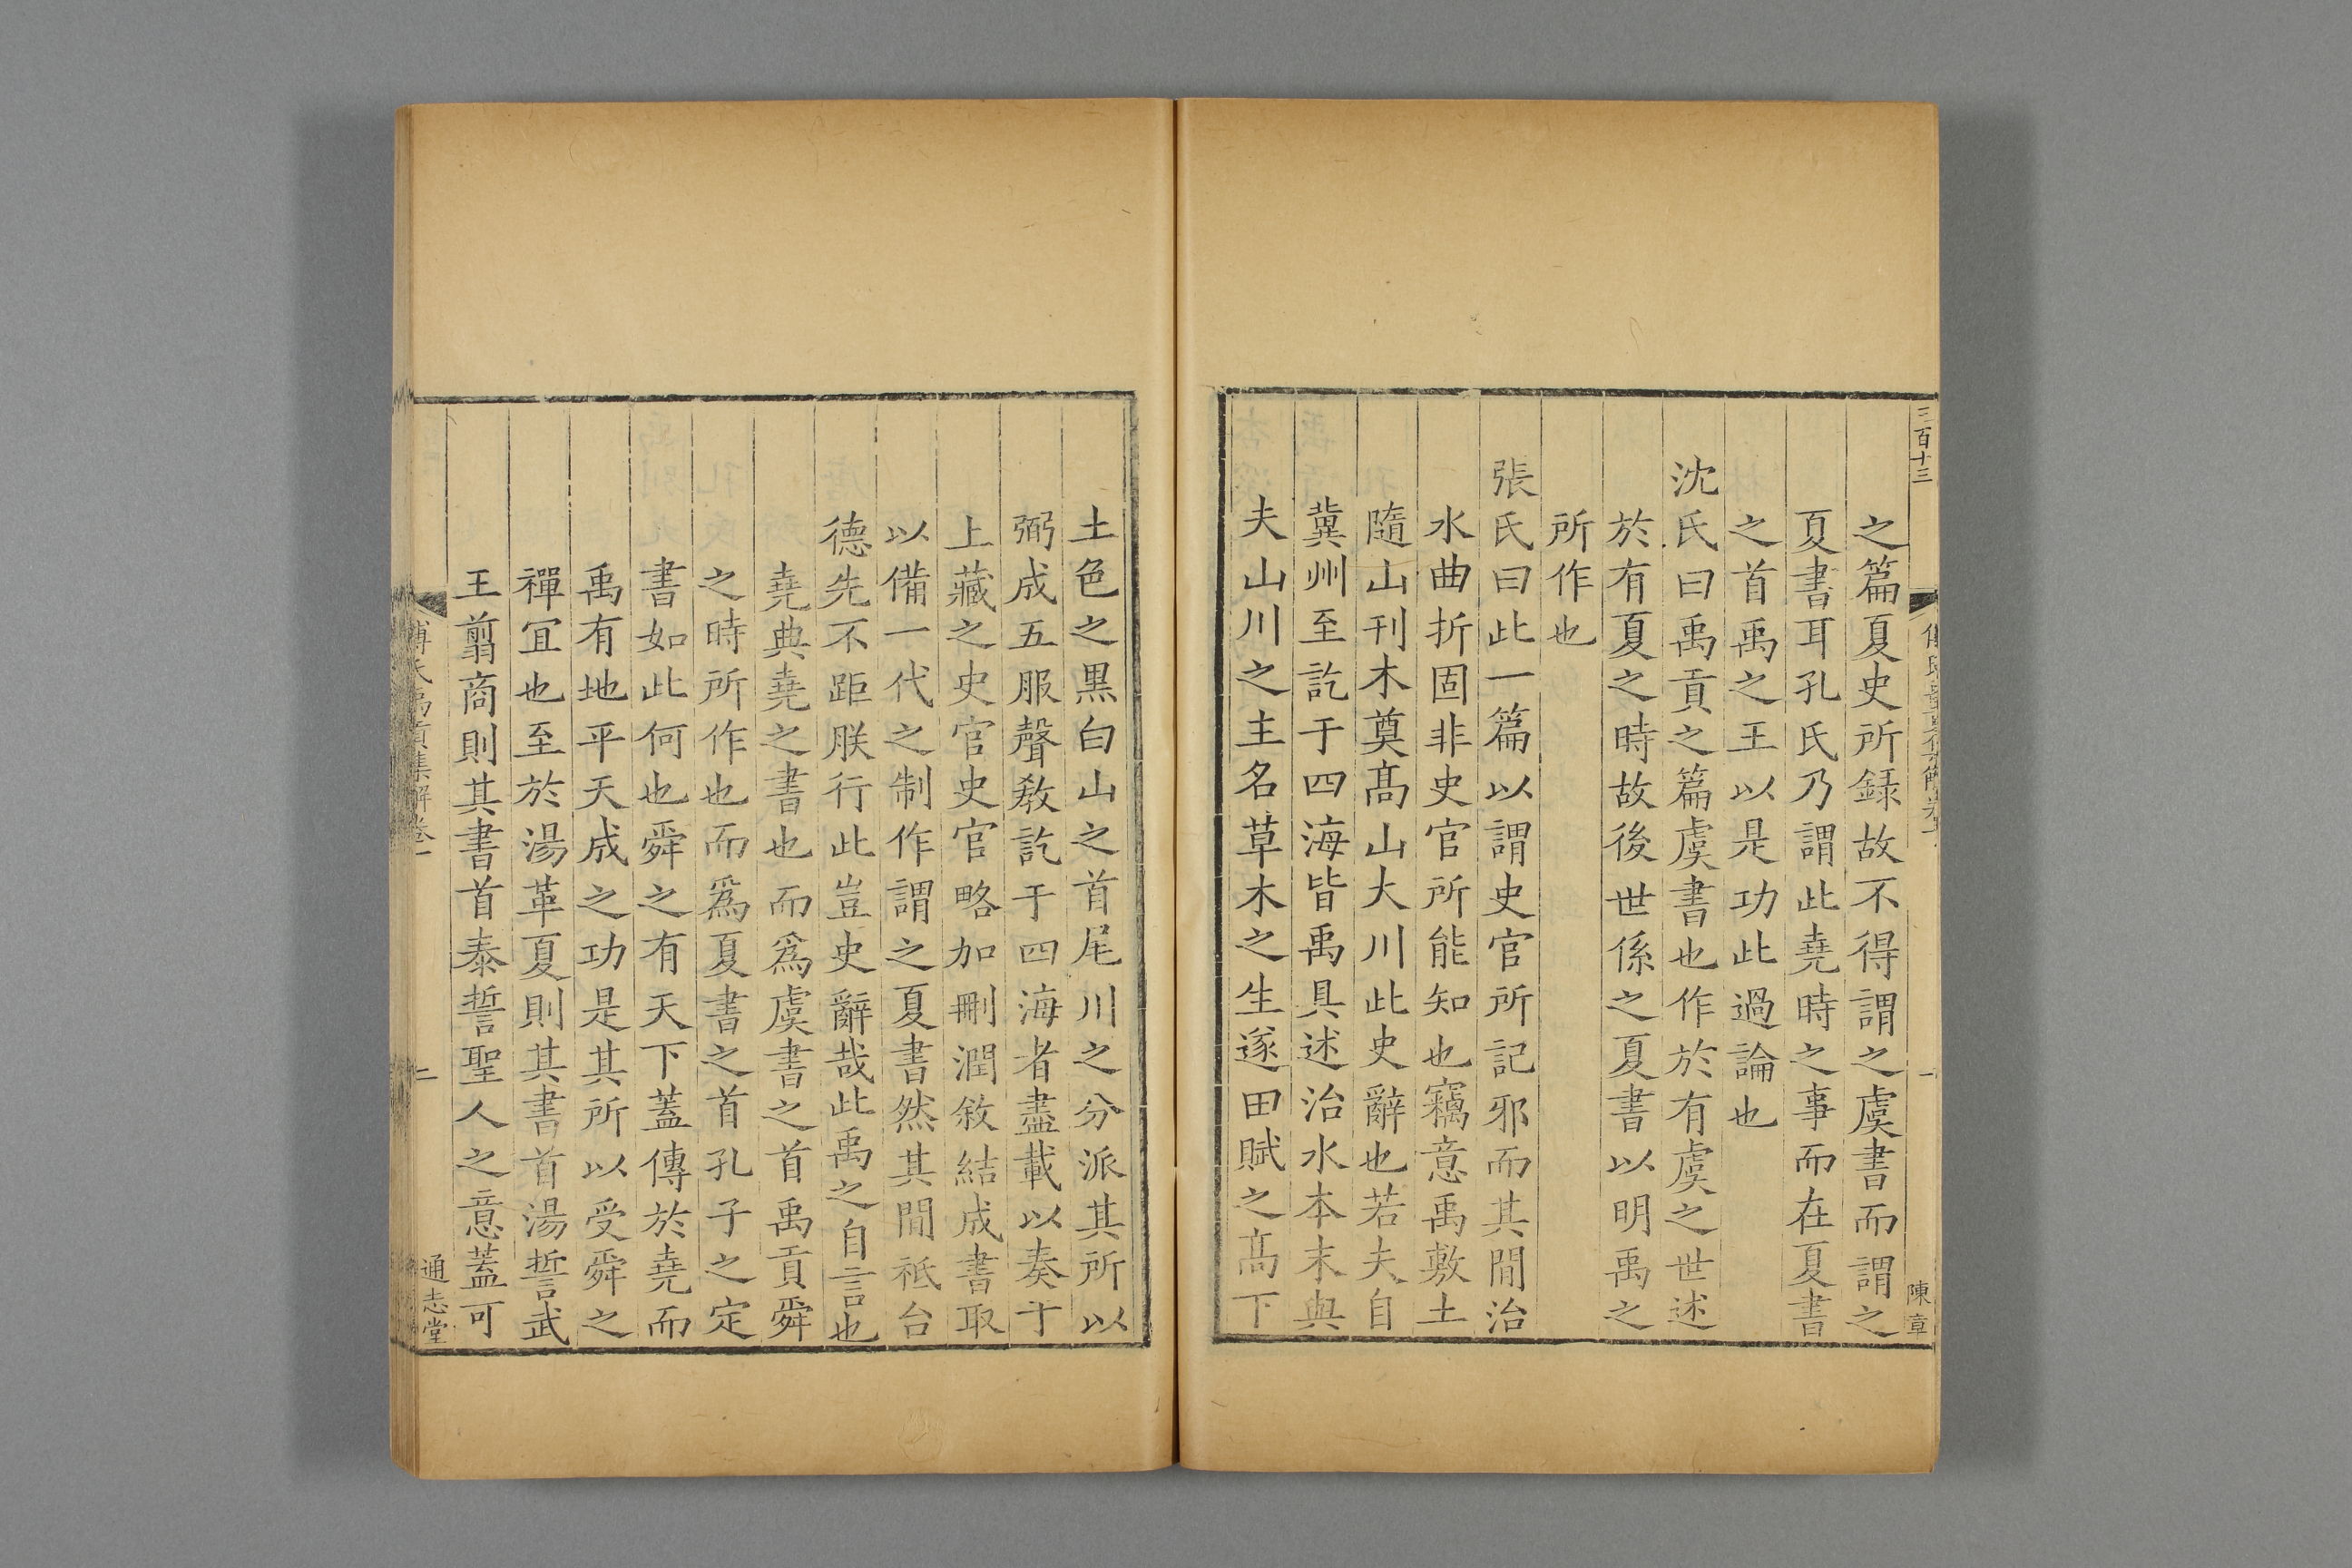 三百十三
陳章
之篇夏史所録故不得謂之虞書而謂之
夏書耳孔氏乃謂此堯時之事而在夏書
之首禹之王以是功此過論也
沈氏曰禹貢之篇虞書也作於有虞之世述
於有夏之時故後世係之夏書以明禹之
所作也
張氏曰此一篇以謂史官所記邪而其閒治
水曲折固非史官所能知也竊意禹敷土
隨山刊木奠髙山大川此史辭也若夫自
冀州至訖于四海皆禹具述治水本末與
夫山川之主名草木之生遂田賦之髙下
土色之黒白山之首尾川之分派其所以
弼成五服聲敎訖于四海者盡載以奏于
上藏之史官史官略加刪潤敘結成書取
以備一代之制作謂之夏書然其閒祗台
德先不距朕行此豈史辭哉此禹之自言也
堯典堯之書也而爲虞書之首禹貢舜
之時所作也而爲夏書之首孔子之定
書如此何也舜之有天下蓋傳於堯而
禹有地平天成之功是其所以受舜之
禪宜也至於湯革夏則其書首湯誓武
王翦商則其書首泰誓聖人之意蓋可
傅氏禹貢集解卷一
二
通志堂